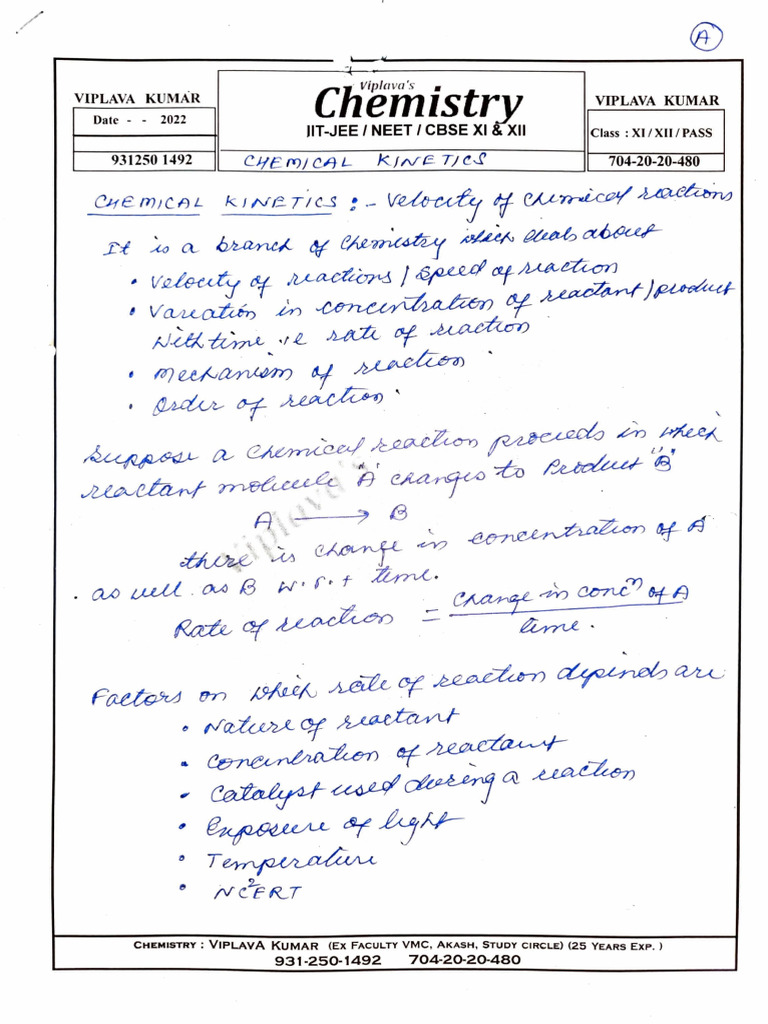 A
VIPLAVA KUMAR
Date - - 2022
931250 1492
Viplava's
Chemistry
IIT-JEE / NEET / CBSE XI & XII
CHEMICAL KINETICS
VIPLAVA KUMAR
Class : XI / XII / PASS
704-20-20-480
CHEMICAL KINETICS :- Velocity of chemical reactions
It is a branch of chemistry which deals about
• Velocity of reactions / Speed of reaction
• Variation in concentration of reactant / product
With time i.e rate of reaction
• Mechanism of reaction.
• Order of reaction.
Suppose a chemical reaction proceeds in which
reactant molecule "A" changes to Product "B"
A ⟶ B
Viplava's
there is change in concentration of A
as well as B w.r.t time.
Rate of reaction = change in concⁿ of A / time.
Factors on which rate of reaction depends are
• Nature of reactant
• Concentration of reactant
• Catalyst used during a reaction
• Exposure of light
• Temperature
• NC²ERT
CHEMISTRY : VIPLAVA KUMAR (EX FACULTY VMC, AKASH, STUDY CIRCLE) (25 YEARS EXP. )
931-250-1492 704-20-20-480